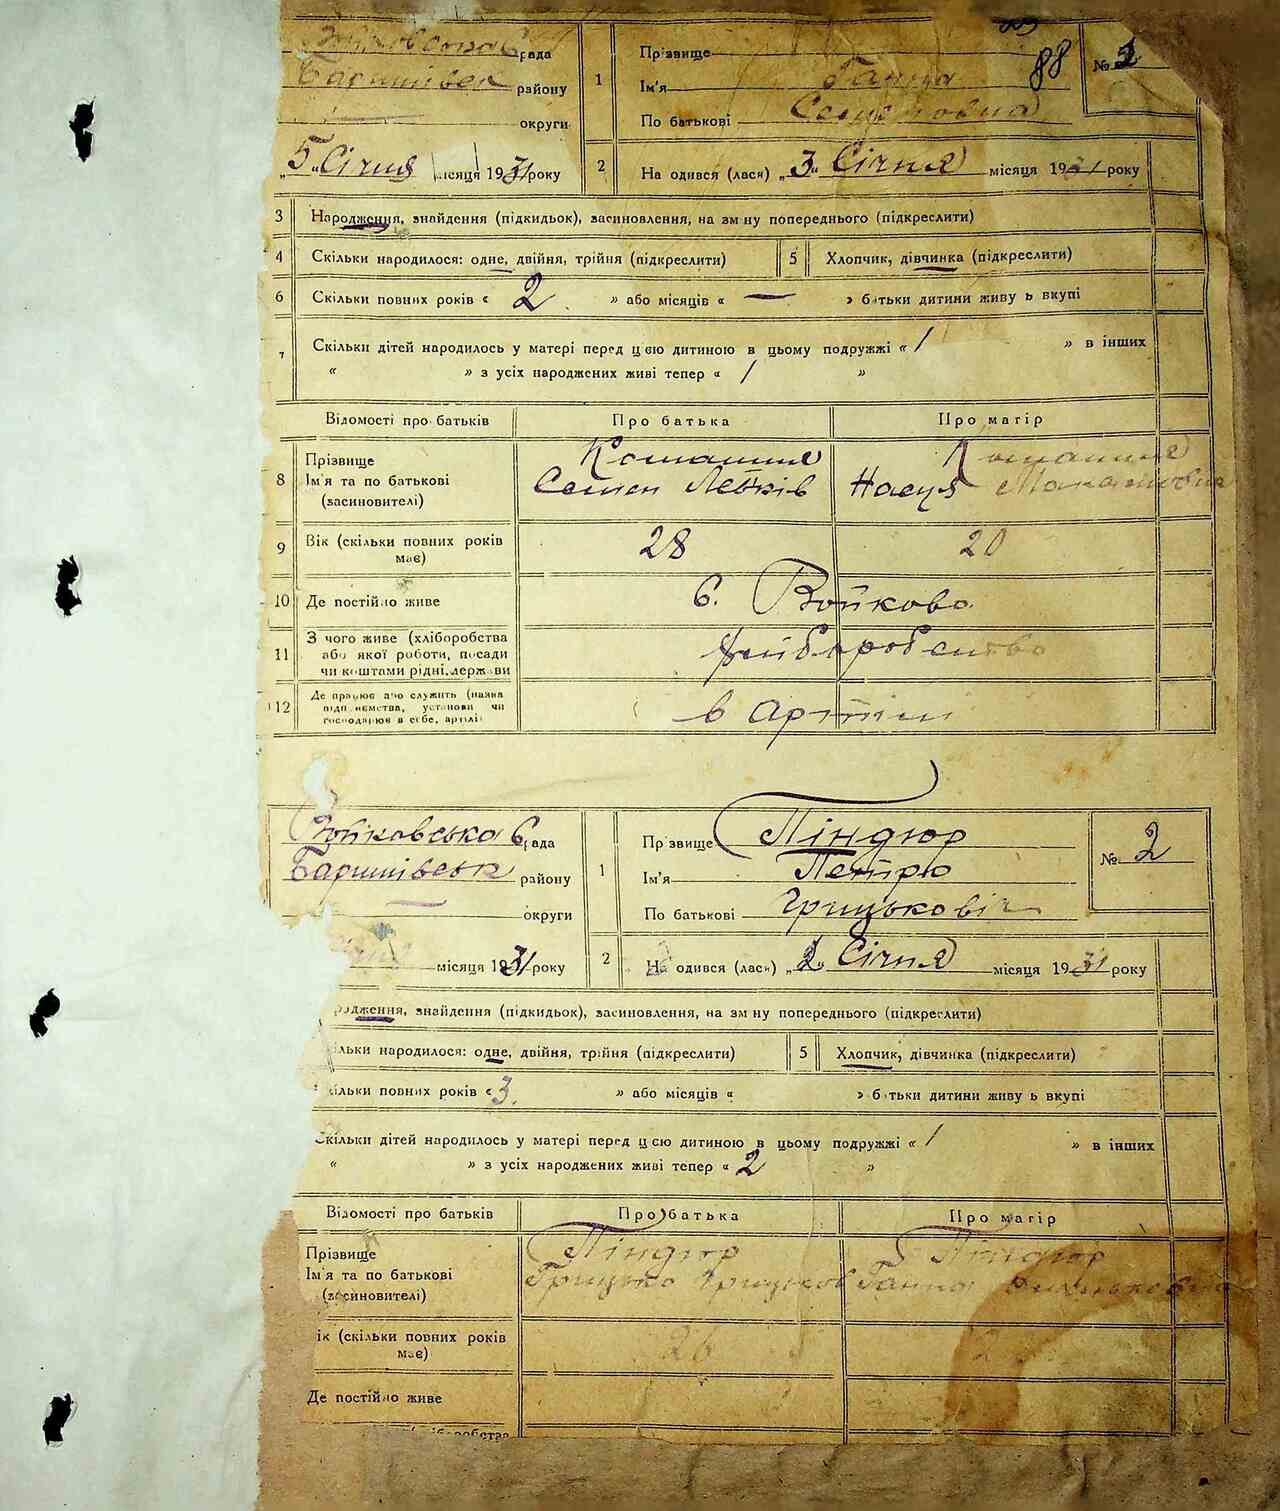 рада
Баришівськ району
округи
1
Прізвище
Ім'я Ганна
По батькові Семенівна
88
№ 1
„5“ Січня місяця 1931 року
2
На одився (лася) „3“ Січня місяця 1931 року
3 Народження, знайдення (підкидьок), засиновлення, на зм ну попереднього (підкреслити)
4 Скільки народилося: одне, двійня, трійня (підкреслити) 5 Хлопчик, дівчинка (підкреслити)
6 Скільки повних років « 2 » або місяців « — » батьки дитини живуть вкупі
7 Скільки дітей народилось у матері перед цією дитиною в цьому подружжі « 1 » в інших
« » з усіх народжених живі тепер « 1 »
Відомості про батьків Про батька Про матір
8 Прізвище
Ім'я та по батькові
(засиновителі)
Семен
9 Вік (скільки повних років має) 28 20
10 Де постійно живе с. Войкова
11 З чого живе (хліборобства або якої роботи, посади чи коштами рідні, держави хліборобство
12 Де працює або служить (назва підприємства, установи чи господарює в себе, артілі в Артілі
Войковська с рада
Баришівськ району
округи
1
Прізвище Піндюр
Ім'я Петро
По батькові Грицькович
№ 2
місяця 1931 року
2
На одився (лася) „2“ Січня місяця 1931 року
родження, знайдення (підкидьок), засиновлення, на зм ну попереднього (підкреслити)
ільки народилося: одне, двійня, трійня (підкреслити) 5 Хлопчик, дівчинка (підкреслити)
кільки повних років « 3. » або місяців « » батьки дитини живуть вкупі
Скільки дітей народилось у матері перед цією дитиною в цьому подружжі « 1 » в інших
« » з усіх народжених живі тепер « 2 »
Відомості про батьків Про батька Про матір
Прізвище Піндюр Піндюр
Ім'я та по батькові Грицько Грицьков Ганна
(засиновителі)
ік (скільки повних років має) 26
Де постійно живе